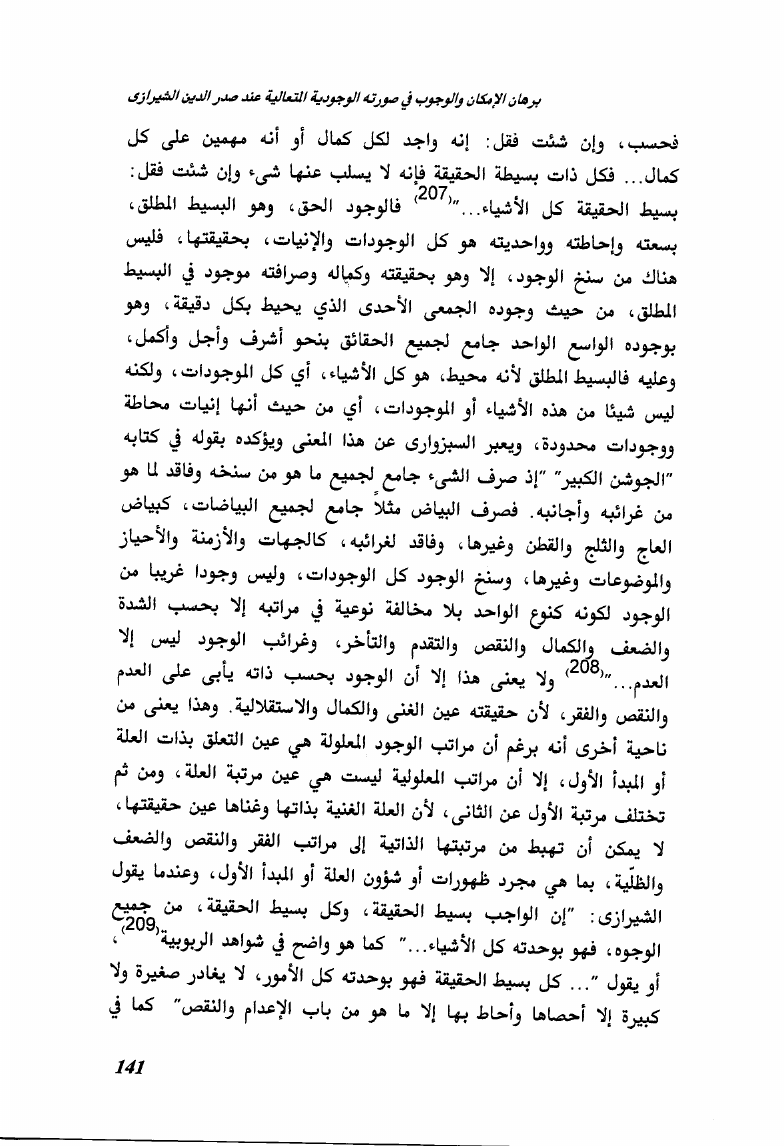 برهان الإمكان والوجوب في صورته الوجودية المتعالية عند صدر الدين الشيرازى
فحسب، وإن شئت فقل: إنه واجد لكل كمال أو أنه مهمين على كل
كمال... فكل ذات بسيطة الحقيقة فإنه لا يسلب عنها شىء وإن شئت فقل:
بسيط الحقيقة كل الأشياء..."(207) فالوجود الحق، وهو البسيط المطلق،
بسعته وإحاطته وواحديته هو كل الوجودات والإنيات، بحقيقتها، فليس
هناك من سنخ الوجود، إلا وهو بحقيقته وكماله وصرافته موجود في البسيط
المطلق، من حيث وجوده الجمعى الأحدى الذي يحيط بكل دقيقة، وهو
بوجوده الواسع الواحد جامع لجميع الحقائق بنحو أشرف وأجل وأكمل،
وعليه فالبسيط المطلق لأنه محيط، هو كل الأشياء، أي كل الموجودات، ولكنه
ليس شيئا من هذه الأشياء أو الموجودات، أي من حيث أنها إنيات محاطة
ووجودات محدودة، ويعبر السبزوارى عن هذا المعنى ويؤكده بقوله في كتابه
"الجوشن الكبير" "إذ صرف الشىء جامع لجميع ما هو من سنخه وفاقد لما هو
من غرائبه وأجانبه. فصرف البياض مثلاً جامع لجميع البياضات، كبياض
العاج والثلج والقطن وغيرها، وفاقد لغرائبه، كالجهات والأزمنة والأحياز
والموضوعات وغيرها، وسنخ الوجود كل الوجودات، وليس وجودا غريبا من
الوجود لكونه كنوع الواحد بلا مخالفة نوعية في مراتبه إلا بحسب الشدة
والضعف والكمال والنقص والتقدم والتأخر، وغرائب الوجود ليس إلا
العدم..."(208) ولا يعنى هذا إلا أن الوجود بحسب ذاته يأبى على العدم
والنقص والفقر، لأن حقيقته عين الغنى والكمال والاستقلالية. وهذا يعنى من
ناحية أخرى أنه برغم أن مراتب الوجود المعلولة هي عين التعلق بذات العلة
أو المبدأ الأول، إلا أن مراتب المعلولية ليست هي عين مرتبة العلة، ومن ثم
تختلف مرتبة الأول عن الثانى، لأن العلة الغنية بذاتها وغناها عين حقيقتها،
لا يمكن أن تهبط من مرتبتها الذاتية إلى مراتب الفقر والنقص والضعف
والظلّية، بما هي مجرد ظهورات أو شؤون العلة أو المبدأ الأول، وعندما يقول
الشيرازى: "إن الواجب بسيط الحقيقة، وكل بسيط الحقيقة، من جميع
الوجوه، فهو بوحدته كل الأشياء..." كما هو واضح في شواهد الربوبية(209)،
أو يقول "... كل بسيط الحقيقة فهو بوحدته كل الأمور، لا يغادر صغيرة ولا
كبيرة إلا أحصاها وأحاط بها إلا ما هو من باب الإعدام والنقص" كما في
141